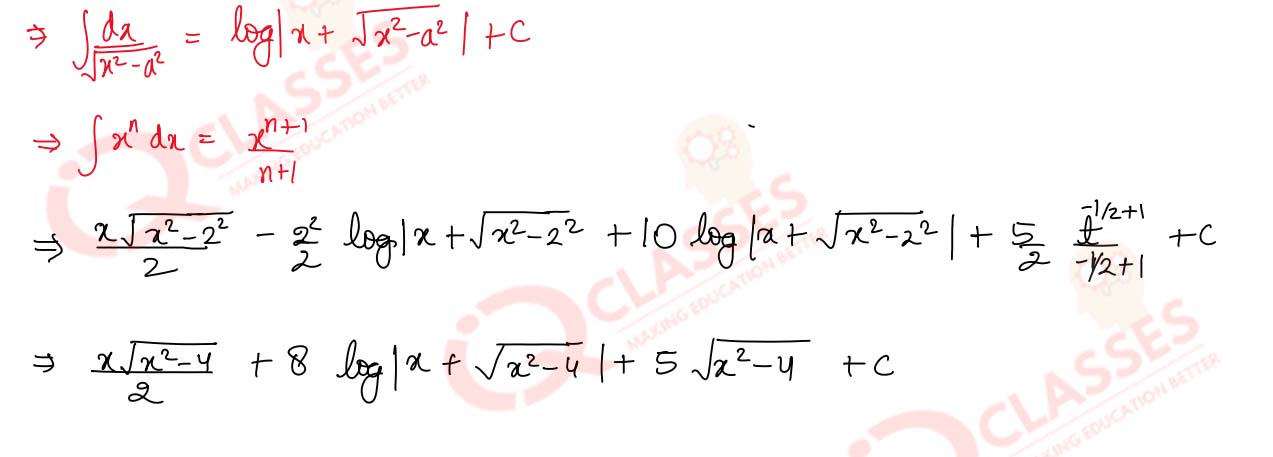 ⇒ ∫ dx/√(x²-a²) = log|x + √(x²-a²)| + C
⇒ ∫ xⁿ dx = xⁿ⁺¹/(n+1)
⇒ x√(x²-2²)/2 - 2²/2 log|x + √(x²-2²) + 10 log|x + √(x²-2²)| + 5/2 t^(-1/2+1)/(-1/2+1) + C
⇒ x√(x²-4)/2 + 8 log|x + √(x²-4)| + 5√(x²-4) + C
CLASSES
MAKING EDUCATION BETTER
CLASSES
MAKING EDUCATION BETTER
CLASSES
MAKING EDUCATION BETTER